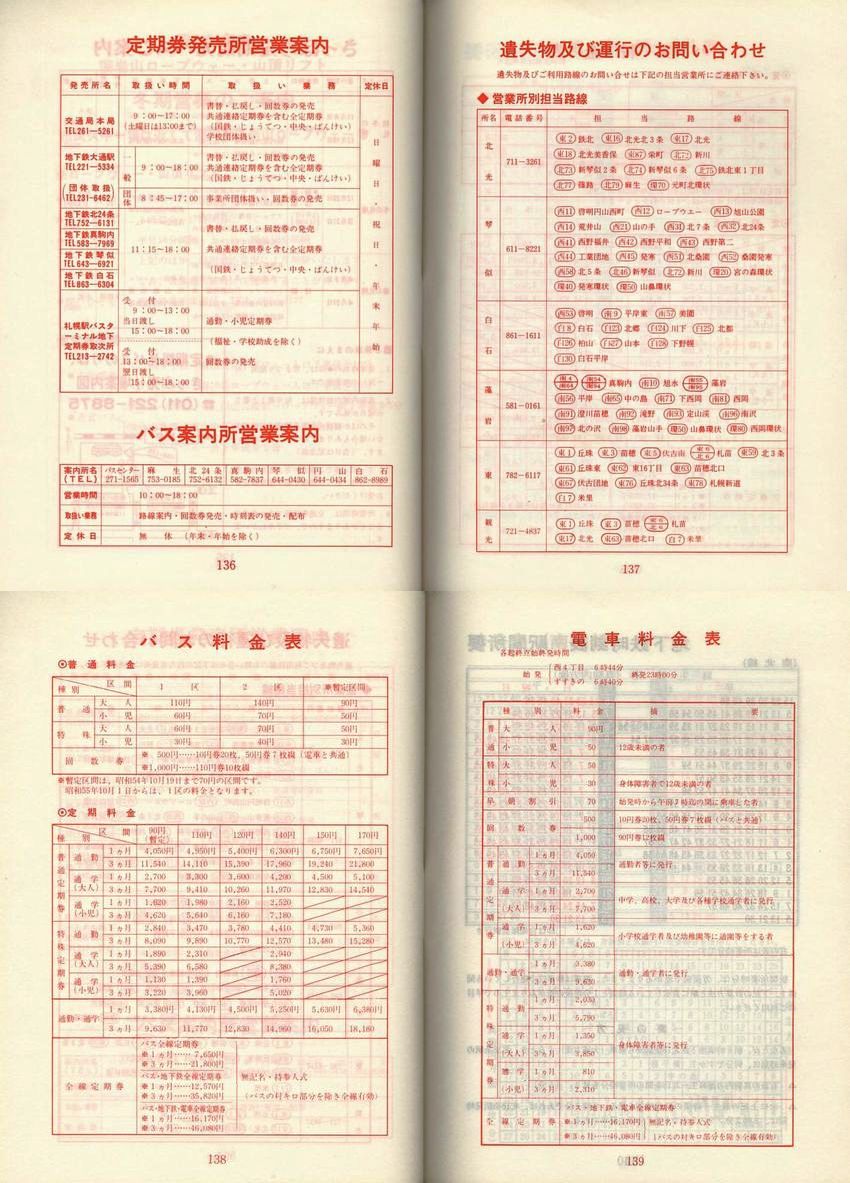 定期券発売所営業案内
発売所名 取扱い時間 取扱い業務 定休日
交通局本局 TEL261-5261
9:00~17:00
(土曜日は13:00まで)
書替・払戻し・回数券の発売
共通連絡定期券を含む全定期券
(国鉄・じょうてつ・中央・ばんけい)
学校団体扱い
地下鉄大通駅 TEL221-5334
一般 9:00~18:00
書替・払戻し・回数券の発売
共通連絡定期券を含む全定期券
(国鉄・じょうてつ・中央・ばんけい)
(団体取扱 TEL231-6462)
団体 8:45~17:00 事業所団体扱い・回数券の発売
地下鉄北24条 TEL752-6131
地下鉄真駒内 TEL583-7969
地下鉄琴似 TEL643-6921
地下鉄白石 TEL863-6304
11:15~18:00
書替・払戻し・回数券の発売
共通連絡定期券を含む全定期券
(国鉄・じょうてつ・中央・ばんけい)
札幌駅バスターミナル地下定期券取次所 TEL213-2742
受付
9:00~13:00
当日渡し
15:00~18:00
受付
13:00~18:00
翌日渡し
15:00~18:00
通勤・小児定期券
(福祉・学校助成を除く)
回数券の発売
日曜日・祝日・年末年始
バス案内所営業案内
案内所名 バスセンター 麻生 北24条 真駒内 琴似 円山 白石
(TEL) 271-1565 753-0185 752-6132 582-7837 644-0430 644-0434 862-8989
営業時間 10:00~18:00
取扱い業務 路線案内・回数券発売・時刻表の発売・配布
定休日 無休 (年末・年始を除く)
136
遺失物及び運行のお問い合わせ
遺失物及びご利用路線のお問い合せは下記の担当営業所にご連絡下さい。
◆営業所別担当路線
所名 電話番号 担当路線
北光 711-3261
東2 鉄北 東16 北光北3条 東17 北光
東18 北光美香保 東87 栄町 北72 新川
北73 新琴似2条 北74 新琴似6条 北75 鉄北東1丁目
北77 篠路 北79 麻生 環70 元町北環状
琴似 611-8221
西11 啓明円山西町 西12 ロープウェー 西13 旭山公園
西14 荒井山 西21 山の手 西31 北7条 西32 北24条
西41 西野福井 西42 西野平和 西43 西野第二
西44 工業団地 西45 発寒 西51 北桑園 西52 桑園発寒
西58 北5条 北46 新琴似 北72 新川 環20 宮の森環状
環40 発寒環状 環50 山鼻環状
白石 861-1611
西53 啓明 南9 平岸東 南57 美園
白8 白石 白23 北郷 白24 川下 白25 北都
白26 柏山 白27 山本 白28 下野幌
白30 白石平岸
藻岩 581-0161
南4 南64 南54 南94 真駒内 南10 旭水 南55 南95 藻岩
南56 平岸 南65 中の島 南71 下西岡 南81 西岡
南91 澄川苗穂 南92 滝野 南93 定山渓 南96 南沢
南97 北の沢 南98 藻岩山手 環50 山鼻環状 環80 西岡環状
東 782-6117
東1 丘珠 東3 苗穂 東5 伏古南 東6 北6 札苗 東59 北3条
東61 丘珠東 東62 東16丁目 東63 苗穂北口
東67 伏古団地 東76 丘珠北34条 東78 札幌新道
白7 米里
観光 721-4837
東1 丘珠 東3 苗穂 東6 北6 札苗
東17 北光 東63 苗穂北口 白7 米里
137
バス料金表
◎普通料金
種別 区間 1区 2区 ※暫定区間
普通 大人 110円 140円 90円
小児 60円 70円 50円
特殊 大人 60円 70円 50円
小児 30円 40円 30円
回数券 ※ 500円……10円券20枚、50円券7枚綴(電車と共通)
※1,000円……110円券10枚綴
※暫定区間は、昭和54年10月19日まで70円の区間です。
昭和55年10月1日からは、1区の料金となります。
◎定期料金
種別 区間 90円(暫定) 110円 120円 140円 150円 170円
普通定期券 通勤 1ヵ月 4,050円 4,950円 5,400円 6,300円 6,750円 7,650円
3ヵ月 11,540 14,110 15,390 17,960 19,240 21,800
通学(大人) 1ヵ月 2,700 3,300 3,600 4,200 4,500 5,100
3ヵ月 7,700 9,410 10,260 11,970 12,830 14,540
通学(小児) 1ヵ月 1,620 1,980 2,160 2,520
3ヵ月 4,620 5,640 6,160 7,180
特殊定期券 通勤 1ヵ月 2,840 3,470 3,780 4,410 4,730 5,360
3ヵ月 8,090 9,890 10,770 12,570 13,480 15,280
通学(大人) 1ヵ月 1,890 2,310 2,940
3ヵ月 5,390 6,580 8,380
通学(小児) 1ヵ月 1,130 1,390 1,760
3ヵ月 3,220 3,960 5,020
通勤・通学 1ヵ月 3,380円 4,130円 4,500円 5,250円 5,630円 6,380円
3ヵ月 9,630 11,770 12,830 14,960 16,050 18,180
全線定期券
バス全線定期券
※1ヵ月…… 7,650円
※3ヵ月……21,800円
バス・地下鉄全線定期券
※1ヵ月……12,570円
※3ヵ月……35,820円
バス・地下鉄・電車全線定期券
※1ヵ月……16,170円
※3ヵ月……46,080円
無記名・持参人式
(バスの対キロ部分を除き全線有効)
138
電車料金表
各起終点始終発時間
始発 西4丁目 6時44分 すすきの 6時40分 終発23時00分
種別 料金 摘要
普通 大人 90円
小児 50 12歳未満の者
特殊 大人 50
小児 30 身体障害者で12歳未満の者
早朝割引 70 始発時から午前7時迄の間に乗車した者
回数券 500 10円券20枚、50円券7枚綴(バスと共通)
1,000 90円券12枚綴
普通定期券 通勤 1ヵ月 4,050
3ヵ月 11,540 通勤者等に発行
通学(大人) 1ヵ月 2,700
3ヵ月 7,700 中学、高校、大学及び各種学校通学者に発行
通学(小児) 1ヵ月 1,620
3ヵ月 4,620 小学校通学者及び幼稚園等に通園等をする者
通勤・通学 1ヵ月 3,380
3ヵ月 9,630 通勤・通学者に発行
特殊定期券 通勤 1ヵ月 2,030
3ヵ月 5,790
通学(大人) 1ヵ月 1,350
3ヵ月 3,850 身体障害者等に発行
通学(小児) 1ヵ月 810
3ヵ月 2,310
全線定期券 バス・地下鉄・電車全線定期券
※1ヵ月……16,170円 無記名・持参人式
※3ヵ月……46,080円 (バスの対キロ部分を除き全線有効)
139